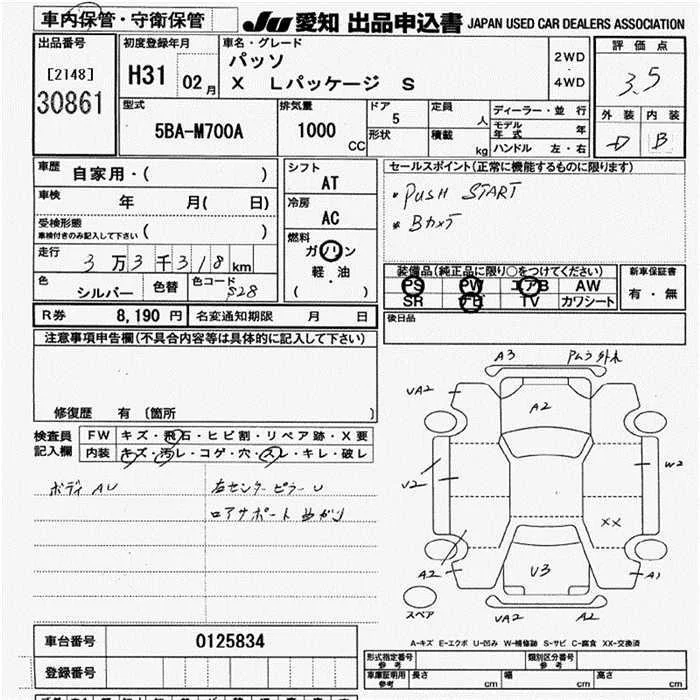 車内保管・守衛保管
JU 愛知 出品申込書 JAPAN USED CAR DEALERS ASSOCIATION
出品番号
[2148]
30861
初度登録年月
H31 02月
車名・グレード
パッソ
X Lパッケージ S
2WD
・
4WD
評価点
3.5
外装 内装
D B
型式
5BA-M700A
排気量
1000 CC
ドア
5
形状
定員
人
積載
kg
ディーラー・並行
モデル年式 年
ハンドル 左・右
車歴
自家用・( )
車検
年 月( 日)
受検形態
車検付きのみ記入して下さい ( )
走行
3万3千318km
色
シルバー
色替
色コード
S28
シフト
AT
冷房
AC
燃料
ガソリン
軽・油
( )
セールスポイント(正常に機能するものに限ります)
・PUSH START
・Bカメラ
装備品(純正品に限り○をつけてください)
PS PW エアB AW
SR TV カワシート
新車保証書
有・無
R券 8,190円 名変通知期限 月 日
後日品
注意事項申告欄(不具合内容等は具体的に記入して下さい)
修復歴 有 〔箇所 〕
検査員
記入欄
FW キズ・飛石・ヒビ割・リペア跡・X要
内装 キズ・汚レ・コゲ・穴・スレ・キレ・破レ
ボディ AU
右センターピラー U
ロアサポート 曲がり
A3
UA2
A2
V2
W2
XX
A2
U3
A1
スペア
UA2
A2
A-キズ E-エクボ U-凹み W-補修跡 S-サビ C-腐食 XX-交換済
車台番号 0125834
登録番号
形式指定番号
参考
類別区分番号
参考
車庫証明用
参考
長さ cm 幅 cm 高さ cm